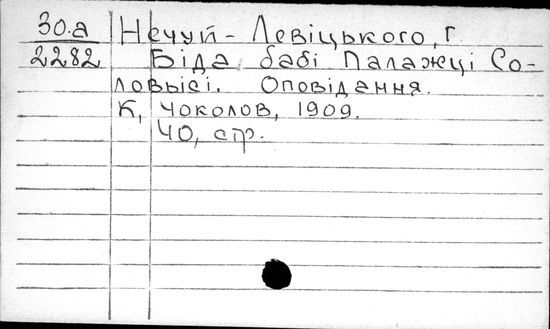 30.а Нечуй-Левіцького, Г
2282 Біда бабі Палажці Со-
ловьісі. Оповідання.
К, Чоколов, 1909.
40, стр.